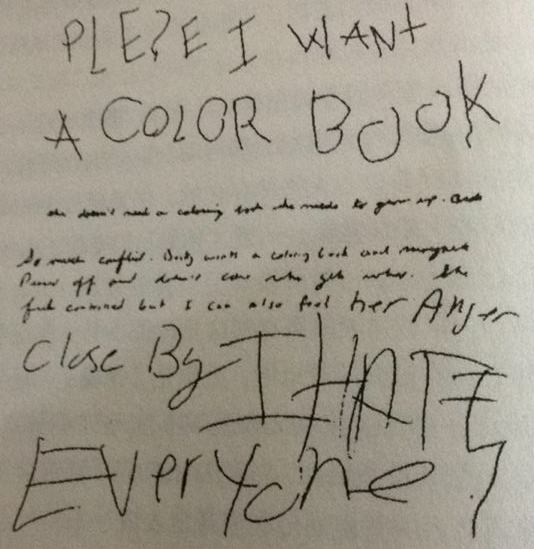 PLEZE I WANT
A COLOR BOOK
she doesn't need a coloring book she needs to grow up.
So much conflict. wants a coloring book and
off and doesn't care who gets what. She
feels but I can also feel her Anger
Close By I HATE
EVeryone